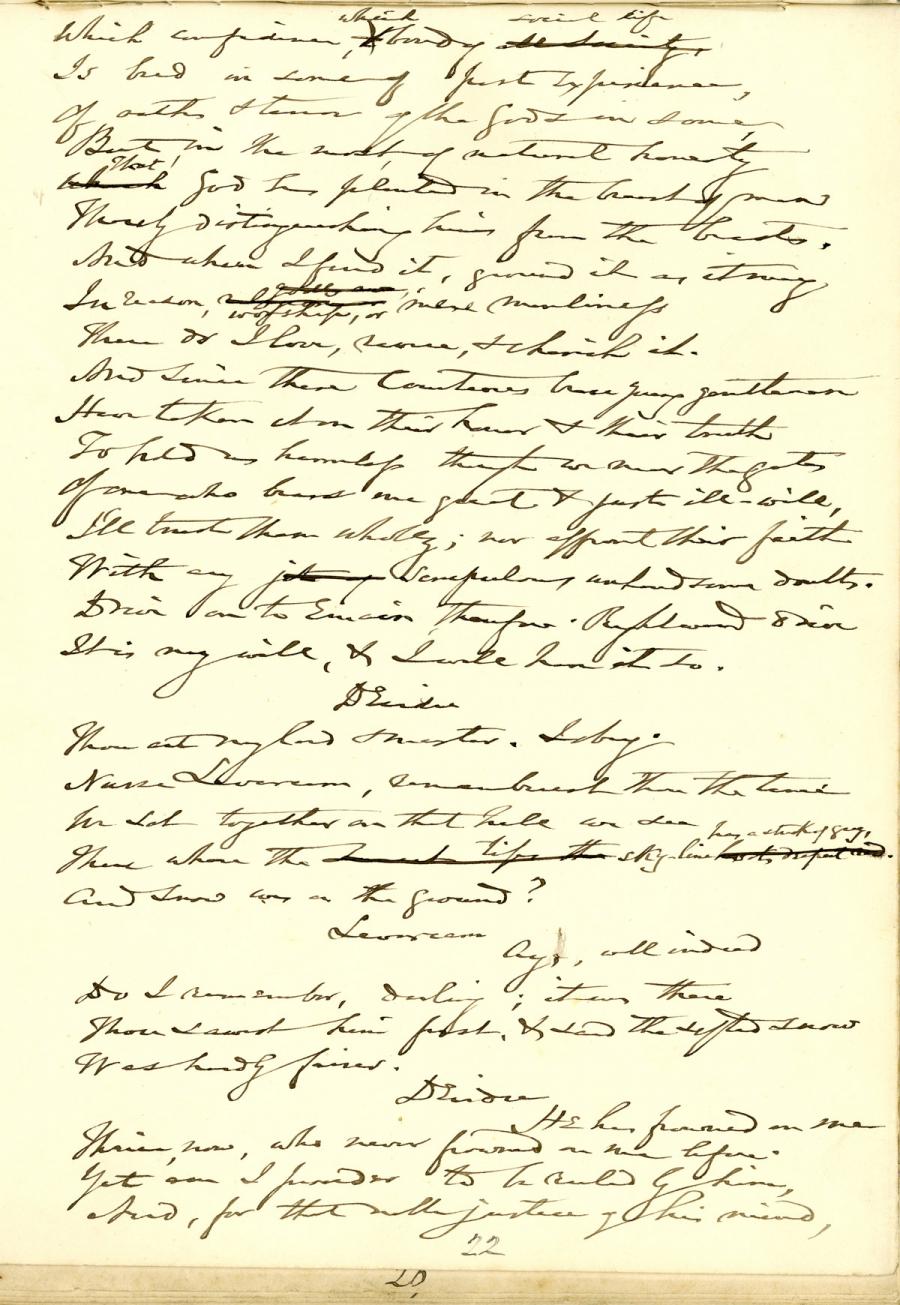 which social life
Which confidence, & bond of all society,
Is bred in some of past experience,
Of oaths & terror of the gods in some,
But, in the most, of natural honesty
That
which God has planted in the breast of man
Thereby distinguishing him from the beasts.
And where I find it, ground it as it may
In reason, worship, or mere manliness
There do I love, & cherish it.
And since these Courteous brave young gentlemen
Have taken it on their honor & their truth
To hold us harmless though we near the gates
Of one who bears me great & just ill-will,
I'll trust them wholly; nor affront their faith
With any scrupulous unhandsome doubts.
Drive on to Emain, therefore. Rightward drive
It is my will, & I will have it so.
Deirdre
Thou art my lord & master. I obey.
Nurse Levarcam, rememberest thou the time
We sat together on that hill we see
has a streak of gray,
There where the sky-line
And snow was on the ground?
Levarcam
Aye, well indeed
Do I remember, darling; it was there
Thou sawest him first, & said the sifted snow
Was hardly fairer.
Deirdre
He has frowned on me
Thrice, now, who never frowned on me before.
Yet am I prouder to be ruled by him,
And, for that noble justice of his mind,
22
20,